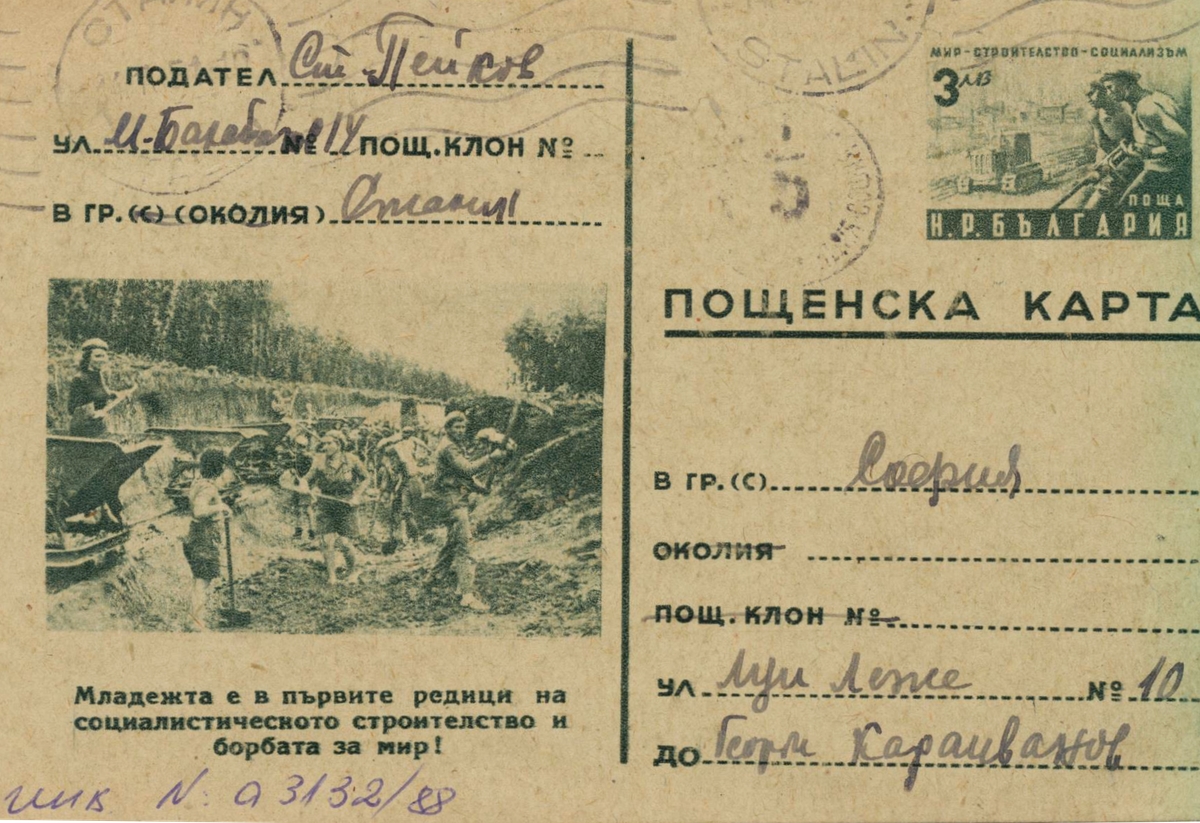 СТАЛИН
STALIN
ПОДАТЕЛ Ст. Пейков
УЛ. № 14 ПОЩ. КЛОН №
В ГР. (С) (ОКОЛИЯ) Сталин
Младежта е в първите редици на
социалистическото строителство и
борбата за мир!
инв N: а 3132/88
МИР-СТРОИТЕЛСТВО-СОЦИАЛИЗЪМ
3 ЛВ
ПОЩА
Н.Р.БЪЛГАРИЯ
ПОЩЕНСКА КАРТА
В ГР. (С) София
ОКОЛИЯ
ПОЩ. КЛОН №
УЛ Луи Леже № 10
ДО Георги Караиванов